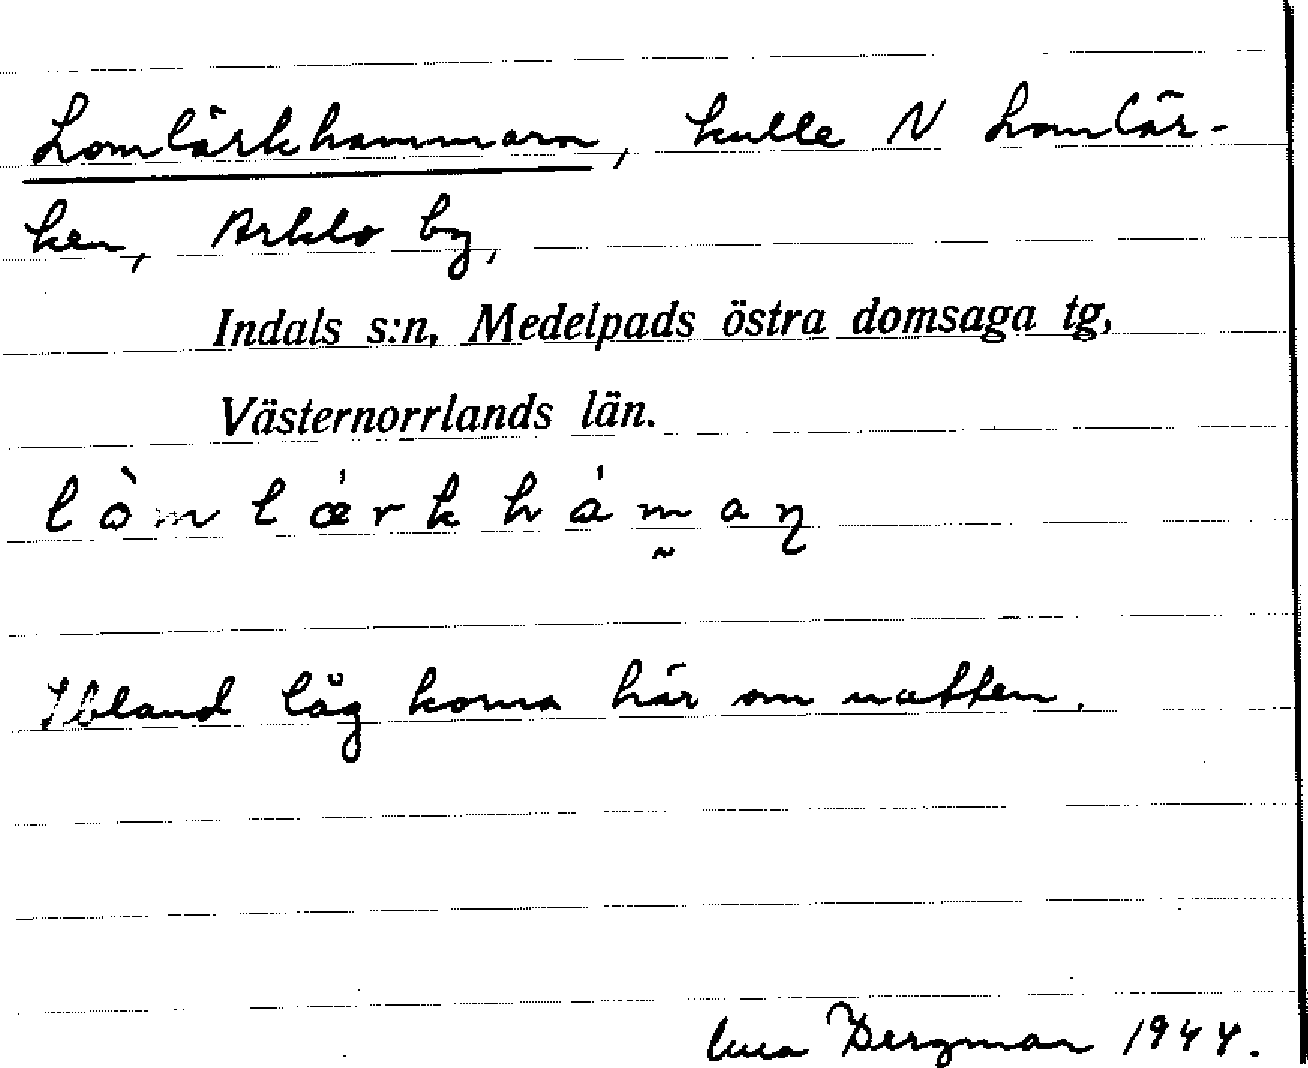 Lomlärkhammarn, kulle N Lomlär-
ken, Arklo by,
Indals s:n, Medelpads östra domsaga tg,
Västernorrlands län.
lòmlǽrkháman̡
Ibland låg korna här om natten.
Bergman 1944.